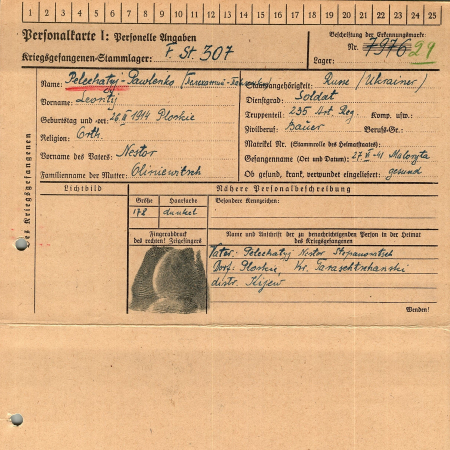 1 2 3 4 5 6 7 8 9 10 11 12 13 14 15 16 17 18 19 20 21 22 23 24 25
Personalkarte I: Personelle Angaben
Kriegsgefangenen-Stammlager: F. St. 307
Beschriftung der Erkennungsmarke:
Nr. 7976 29
Lager:
des Kriegsgefangenen
Name: Pelechatyj-Pawlenko
Vorname: Leontij
Geburtstag und -ort: 1914 Ploskie
Religion: Orth.
Vorname des Vaters: Nestor
Familienname der Mutter: Oliniewitsch
Staatsangehörigkeit: Russe (Ukrainer)
Dienstgrad: Soldat
Truppenteil: 235 Art. Reg. Komp. usw.:
Zivilberuf: Bauer Berufs-Gr.:
Matrikel Nr. (Stammrolle des Heimatstaates):
Gefangennahme (Ort und Datum): 27. 41 Maloryta
Ob gesund, krank, verwundet eingeliefert: gesund
Lichtbild
Nähere Personalbeschreibung
Größe Haarfarbe Besondere Kennzeichen:
178 dunkel
Fingerabdruck
des rechten! Zeigefingers
Name und Anschrift der zu benachrichtigenden Person in der Heimat
des Kriegsgefangenen
Vater: Pelechatyj Nestor Stepanowitsch
Dorf: Ploskie, Kr. Taraschtschanski
distr. Kijew
Wenden!